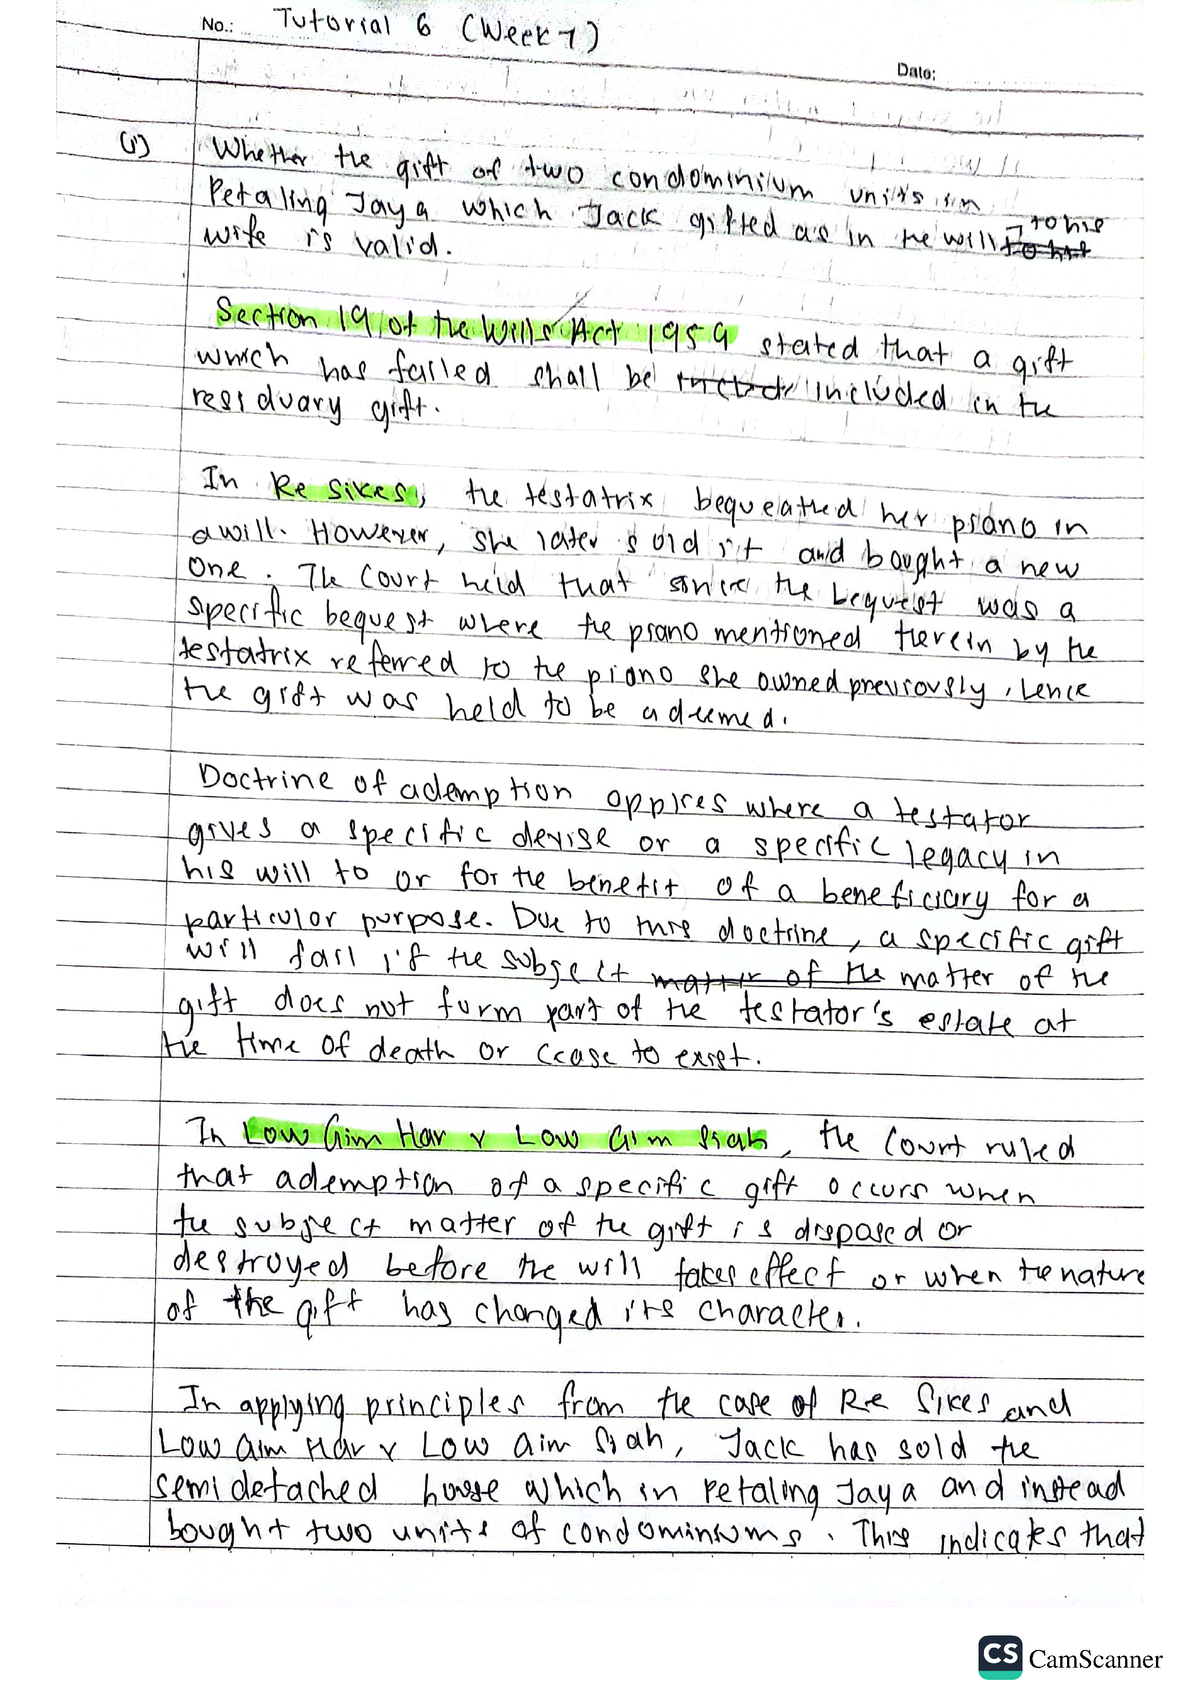 No.: Tutorial 6 (Week 7)
Date:
(i) Whether the gift of two condominium units in
Petaling Jaya which Jack gifted as in the will to his
wife is valid.
Section 19 of the Wills Act 1959 stated that a gift
which has failed shall be included in the
residuary gift.
In Re Sikes, the testatrix bequeathed her piano in
a will. However, she later sold it and bought a new
one. The Court held that since the bequest was a
specific bequest where the piano mentioned therein by the
testatrix referred to the piano she owned previously, hence
the gift was held to be adeemed.
Doctrine of ademption applies where a testator
gives a specific devise or a specific legacy in
his will to or for the benefit of a beneficiary for a
particular purpose. Due to this doctrine, a specific gift
will fail if the subject matter of the matter of the
gift does not form part of the testator's estate at
the time of death or cease to exist.
In Low Gim Har v Low Gim Siah, the Court ruled
that ademption of a specific gift occurs when
the subject matter of the gift is disposed or
destroyed before the will takes effect or when the nature
of the gift has changed its character.
In applying principles from the case of Re Sikes and
Low Gim Har v Low Gim Siah, Jack has sold the
semi detached house which in Petaling Jaya and instead
bought two units of condominiums. This indicates that
CS CamScanner